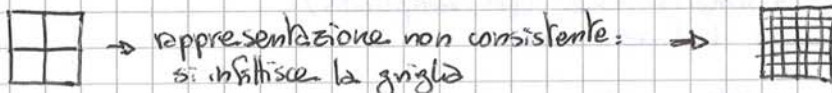 → rappresentazione non consistente: ⇒
si infittisce la griglia